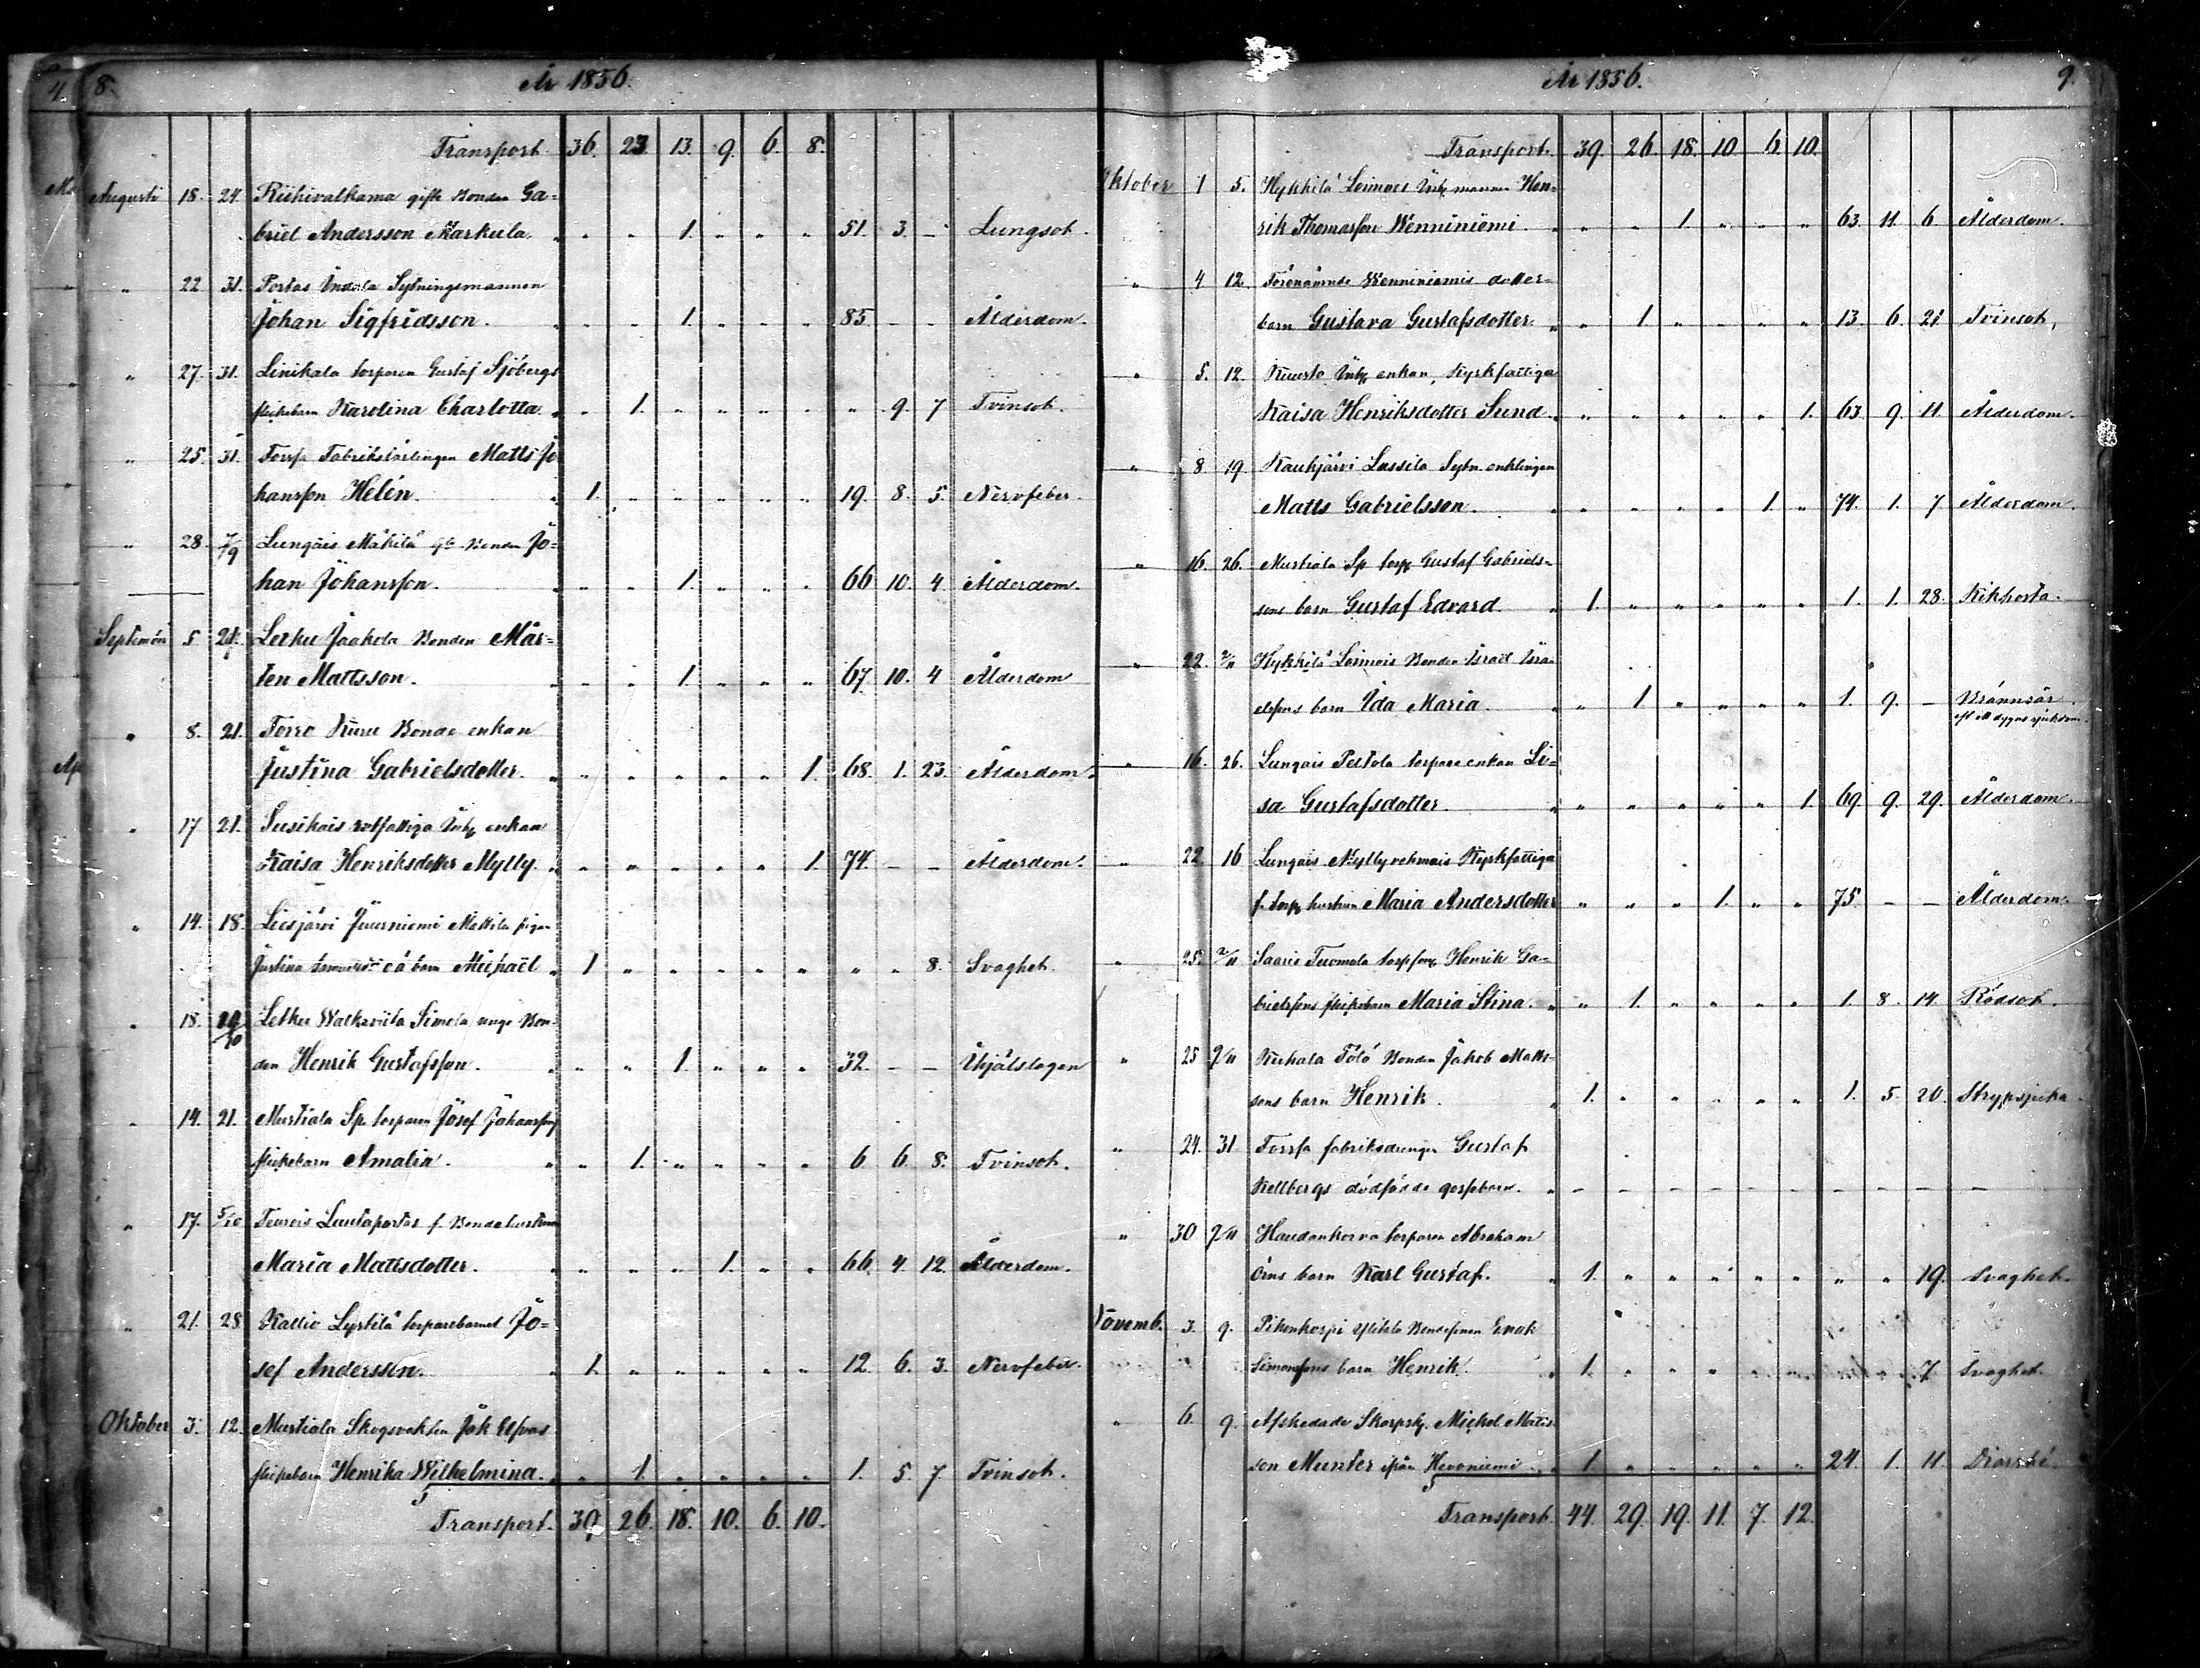 8.
År 1856.
Transport. 36. 23. 13. 9. 6. 8.
Augusti 18. 24. Riihivalkama gifte Bonden Ga=
briel Andersson Markula. " " " 1. " " " 51. 3. – Lungsot.
" 22 31. Portas Sytningsmannen
Johan Sigfridsson. " " " 1. " " " 85. – – Ålderdom.
" 27. 31. Linikala torparen Gustaf Sjöbergs
flickebarn Karolina Charlotta. " " 1. " " " " " 9. 7 Tvinsot.
" 25. 31. Forssa Fabrikslärlingen Matts Jo
hansson Helén. " 1. " " " " " 19. 8. 5. Nervfeber.
" 28. 7/9 Lungois Mäkilä Bonden Jo=
han Johansson. " " " 1. " " " 66 10. 4 Ålderdom.
September 5 21. Letku Jaakola Bonden Mår=
ten Mattsson. " " " 1. " " " 67. 10. 4 Ålderdom
" 8. 21. Torro Kuru Bonde enkan
Justina Gabrielsdotter. " " " " " " 1. 68. 1. 23. Ålderdom.
" 17 21. Susikais rotfattiga Inh. enkan
Kaisa Henriksdotter Mylly. " " " " " " 1. 74. – – Ålderdom.
" 14. 18. Liesjärvi Juurniemi Mattila pigan
Justina o ä barn Michaël " 1 " " " " " " " 8. Svaghet.
" 18. 19/10 Letku Walkaviita Simola unge Bon=
den Henrik Gustafsson. " " " 1. " " " 32. – – Ihjälslagen
" 14. 21. Mustiala Sp. torparen Josef Johanssons
flickebarn Amalia. " " 1. " " " " 6. 6. 8. Tvinsot.
" 17. 5/10 Lautaportas f. Bondehustrun
Maria Mattsdotter. " " " " 1. " " 66. 4. 12. Ålderdom.
" 21. 28 Kallio Lystilä torparebarnet Jo=
sef Andersson. " 1. " " " " " 12. 6. 3. Nervfeber.
Oktober 3. 12. Mustiala Skogsvakten Jak.
flickebarn Henrika Wilhelmina. " " 1. " " " " 1. 5. 7 Tvinsot.
Transport. 39. 26. 18. 10. 6. 10.
År 1856.
9.
Transport. 39. 26. 18. 10 6. 10.
Oktober 1 5. Hykkilä Loimois Inh. mannen Hen=
rik Thomasson Wenniniemi. " " " 1 " " " 63. 11. 6. Ålderdom.
" 4 12. Förenämnde Wenniniemis dotter=
barn Gustava Gustafsdotter. " " 1 " " " " 13. 6. 21 Tvinsot,
" 5. 12. Kuusto Inh. enkan, Kyrkfattiga
Kaisa Henriksdotter Sund. " " " " " " 1. 63. 9. 11. Ålderdom.
" 8 19. Kaukjärvi Lassila Sytn. enklingen
Matts Gabrielsson. " " " " " 1. " 74. 1. 7 Ålderdom.
" 16. 26. Mustiala Sp. torp. Gustaf Gabriels=
sons barn Gustaf Edvard. " 1. " " " " " 1. 1. 28. Kikhosta.
" 22. 2/11 Hykkilä Loimois Bonden Israel Isra=
elsons barn Ida Maria. " " 1 " " " " 1. 9. – Brännsår.
" 16. 26. Lungois Peltola torpare enkan Li=
sa Gustafsdotter. " " " " " " 1. 69. 9. 29. Ålderdom.
" 22. 16 Lungois Kyrkfattiga
f. torp. hustrun Maria Andersdotter " " " " 1. " " 75. – – Ålderdom.
" 25. 2/11 Saaris Tuomola Henrik Ga=
brielssons flickebarn Maria Stina. " " 1. " " " " 1. 8. 14. Rödsot.
" 25 9/11 Kukala Tölö Bonden Jakob Matts=
sons barn Henrik. " 1. " " " " " 1. 5. 20. Strypsjuka.
" 24. 31. Forssa fabriksdrengen Gustaf
Kellbergs dödfödde gossebarn. " – – – – – – – – – –
" 30 9/11 Haudankorva torparen Abraham
Örns barn Karl Gustaf. " 1. " " " " " " " 19. Svaghet.
Novemb. 3. 9. Pikonkorpi Bondesonen Enok
Simonsons barn Henrik. " 1. " " " " " " " 7 Svaghet.
" 6. 9. Afskedade Skarpsk. Michel Matts
son Munter ifrån Hevoniemi. " 1. " " " " " 24. 1. 11.
Transport. 44. 29. 19. 11. 7. 12.